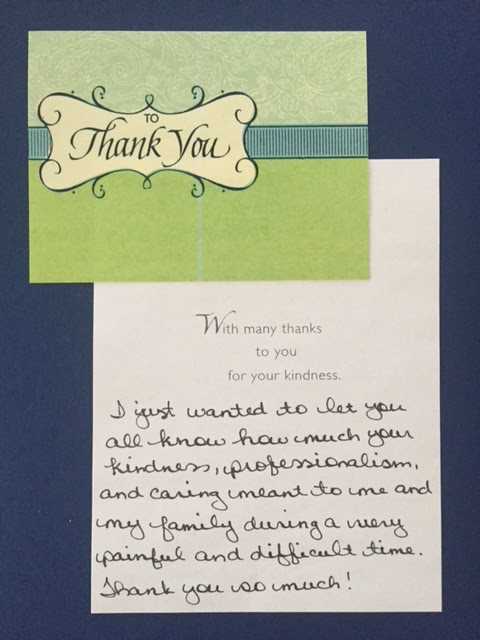 TO
Thank You
With many thanks
to you
for your kindness.
I just wanted to let you
all know how much your
kindness, professionalism,
and caring meant to me and
my family during a very
painful and difficult time.
Thank you so much!